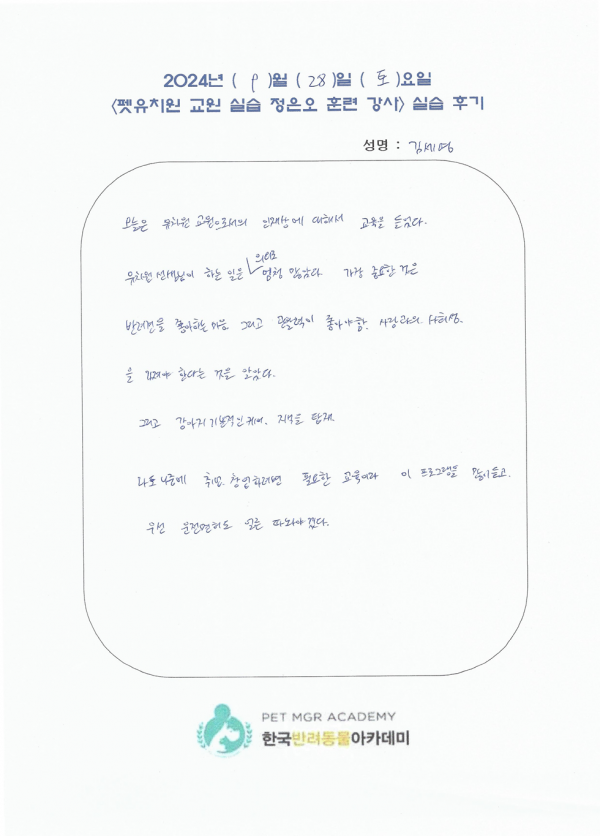 2024년 ( 9 )월 ( 28 )일 ( 토 )요일
<펫유치원 교원 실습 정은오 훈련 강사> 실습 후기
성명 : 김세영
오늘은 유치원 교원으로서의 인재상에 대해서 교육을 듣었다.
의외로
유치원 선생님이 하는 일은 엄청 많았다. 가장 중요한 것은
반려견을 좋아하는 마음 그리고 관찰력이 좋아야함. 사람과의 사회성.
을 길러야 한다는 것을 알았다.
그리고 강아지 기본적인 케어, 지식을 탑재.
나도 나중에 취업. 창업하려면 필요한 교육이라 이 프로그램을 많이 듣고.
우선 운전면허도 얼른 따놔야겠다.
PET MGR ACADEMY
한국반려동물아카데미